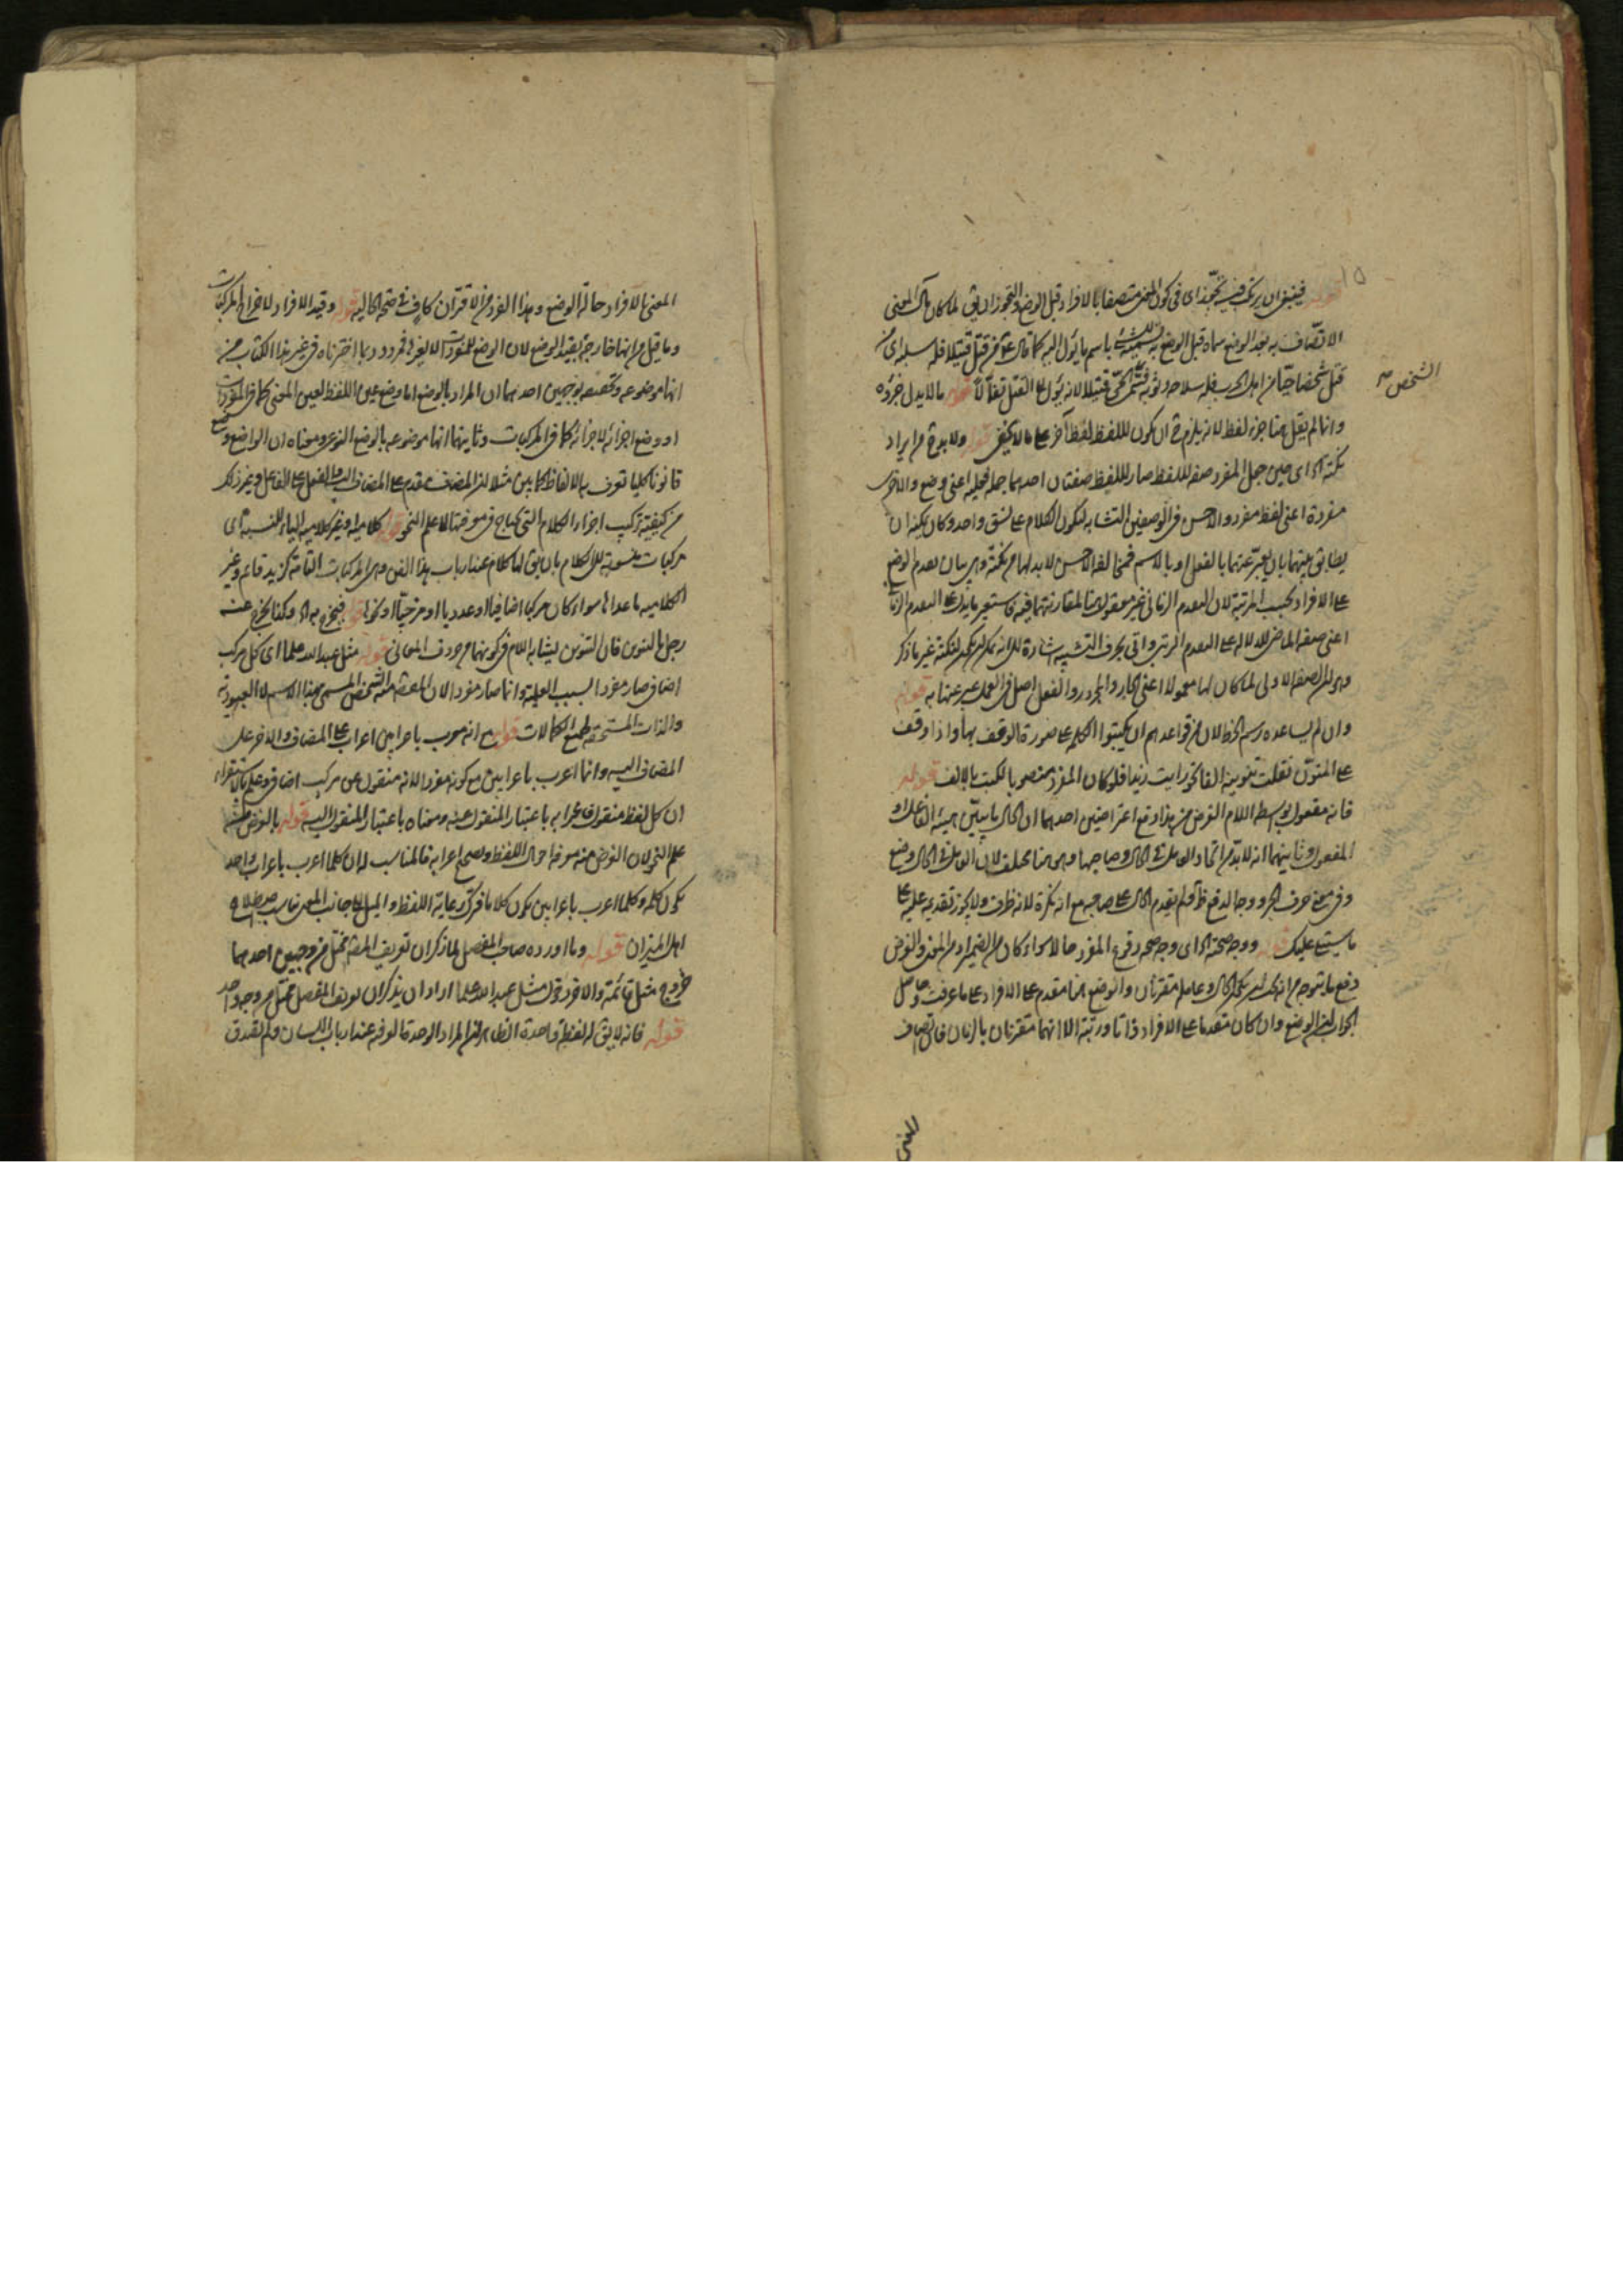 قوله فينبغي ان يرتكب فيه تجوز اى فى كون المعنى متصفا بالافراد قبل الوضع والتجوز ان يق لما كان مآل المعنى
الاتصاف به بعد الوضع سماه قبل الوضع به تسمية للشئ باسم ما يؤل اليه كما قال من قتل قتيلا فله سلبه اى من
قتل شخصا حيا من اهل الحرب فله سلاحه وثوبه فسمى الحى قتيلا لانه يؤل الى القتل تفألا قوله ما لا يدل جزؤه
الشخص صح
وانما لم يقل هنا جزء لفظ لانه يلزم ح ان يكون لللفظ لفظ آخر على ما لا يخفى قوله ولا بد ح من ايراد
نكتة اى حين جعل المفرد صفة لللفظ صار لللفظ صفتان احدهما جملة فعلية اعنى وضع والاخرى
مفردة اعنى لفظ مفرد والاحسن فى الوصفين التشابه ليكون الكلام على نسق واحد وكان يمكنه ان
يطابق بينهما بان يعبر عنهما بالفعل او بالاسم فمخالفة الاحسن لا بد لها من نكتة وهى بيان تقدم الوضع
على الافراد بحسب المرتبة لان التقدم الزمانى غير معقول هنا لمقارنتهما فيه فاستعير ما يدل على التقدم الزمانى
اعنى صيغة الماضى للدلالة على التقدم الرتبى واتى بحرف التشبيه اشارة الى انه يمكن لنكتة غير ما ذكر
وهى ان الصفة الاولى لما كان لها معمولا اعنى الجار والمجرور والفعل اصل فى العمل عبر عنها به قوله
وان لم يساعده رسم الخط لان من قواعدهم ان يكتبوا الكلمة على صورة الوقف بها واذا وقف
على المنون تقلب تنوينه الفا نحو رايت زيدا فلو كان المفرد منصوبا لكتب بالالف قوله
فانه مفعول بواسطة اللام الغرض من هذا دفع اعتراضين احدهما ان الحال ما يبين هيئة الفاعل او
المفعول وثانيهما انه لا بد من اتحاد العامل فى الحال وصاحبها وهى هنا مختلف لان العامل فى الحال وضع
وفى معنى حرف الجر ووجه الدفع ظ ولم يقدم الحال على صاحبه مع انه نكرة لانه ظرف ولا يجوز تقديمه عليه على
ما سيتلى عليك قوله ووجه صحته اى وجه صحة وقوع المفرد حالا سواء كان من الضمير او من المعنى والغرض
دفع ما يتوهم من انه يجب ان يكون الحال وعامله مقترنان والوضع هنا مقدم على الافراد على ما عرفت وحاصل
الجواب ان الوضع وان كان متقدما على الافراد ذاتا ورتبة الا انهما متقرنان بالزمان فاتصاف
المعنى
المعنى بالافراد حالة الوضع وهذا القدر من الاقتران كاف فى صحة الحالية قوله وقيد الافراد لاخراج المركبات
وما قيل من انها خارجة بقيد الوضع لان الوضع للمفردات لا لغيرها فمردود بما اخترناه فى غير هذا الكتاب من
انها موضوعه وتحقيقه بوجهين احدهما ان المراد بالوضع اما وضع عين اللفظ لعين المعنى كما فى المفردات
او وضع اجزائه لاجزائه كما فى المركبات وثانيهما انها موضوعه بالوضع النوعى ومعناه ان الواضع وضع
قانونا كليا تعرف به الالفاظ كما بين مثلا ان المضاف مقدم على المضاف اليه والفعل على الفاعل وغير ذلك
من كيفية تركيب اجزاء الكلام التى يحتاج فى معرفتها الى علم النحو قوله كلامية او غير كلامية الياء للنسبة اى
مركبات منسوبة الى الكلام بان يق لها كلام عند ارباب هذا الفن وهى المركبات التامة كزيد قائم وغير
الكلامية ما عداها سواء كان مركبا اضافيا او عدديا او مزجيا او نحوها قوله فيخرج به اه وكذا يخرج عنه
رجل بالتنوين فان التنوين يشابه اللام فى كونهما من حروف المعانى قوله مثل عبد الله علما اى كل مركب
اضافى صار مفردا بسبب العلمية وانما صار مفردا لان المقصود منه الشخص المسمى بهذا الاسم لا العبودية
والذات المستحقة لجميع الكمالات قوله مع انه معرب باعرابين اعراب على المضاف والاخر على
المضاف اليه وانما اعرب باعرابين مع كونه مفردا لانه منقول عن مركب اضافى وعلم بالاستقراء
ان كل لفظ منقول فاعرابه باعتبار المنقول عنه ومعناه باعتبار المنقول اليه قوله بالغرض من
علم النحو لان الغرض منه معرفة احوال اللفظ وتصحيح اعرابه فالمناسب له ان كلما اعرب باعراب واحد
يكون كلمة وكلما اعرب باعرابين يكون كلاما فترك رعاية اللفظ والميل الى جانب المعنى مناسب باصطلاح
اهل الميزان قوله وما اورده صاحب المفصل لما ذكر ان تعريف المصنف مختل من وجهين احدهما
خروج مثل قائمة والاخر دخول مثل عبد الله علما اراد ان يذكر ان تعريف المفصل مختل من وجه واحد
قوله فانه لا يق له لفظة واحدة الظاهر ان المراد الوحدة العرفية عند ارباب اللسان ولم تصدق